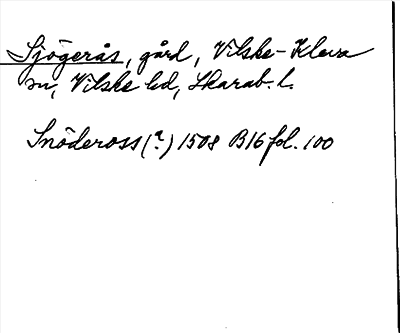 Sjögerås, gård, Vilske-Kleva
sn, Vilske hd, Skarab. l.
Snödeross (?) 1508 B16 fol. 100